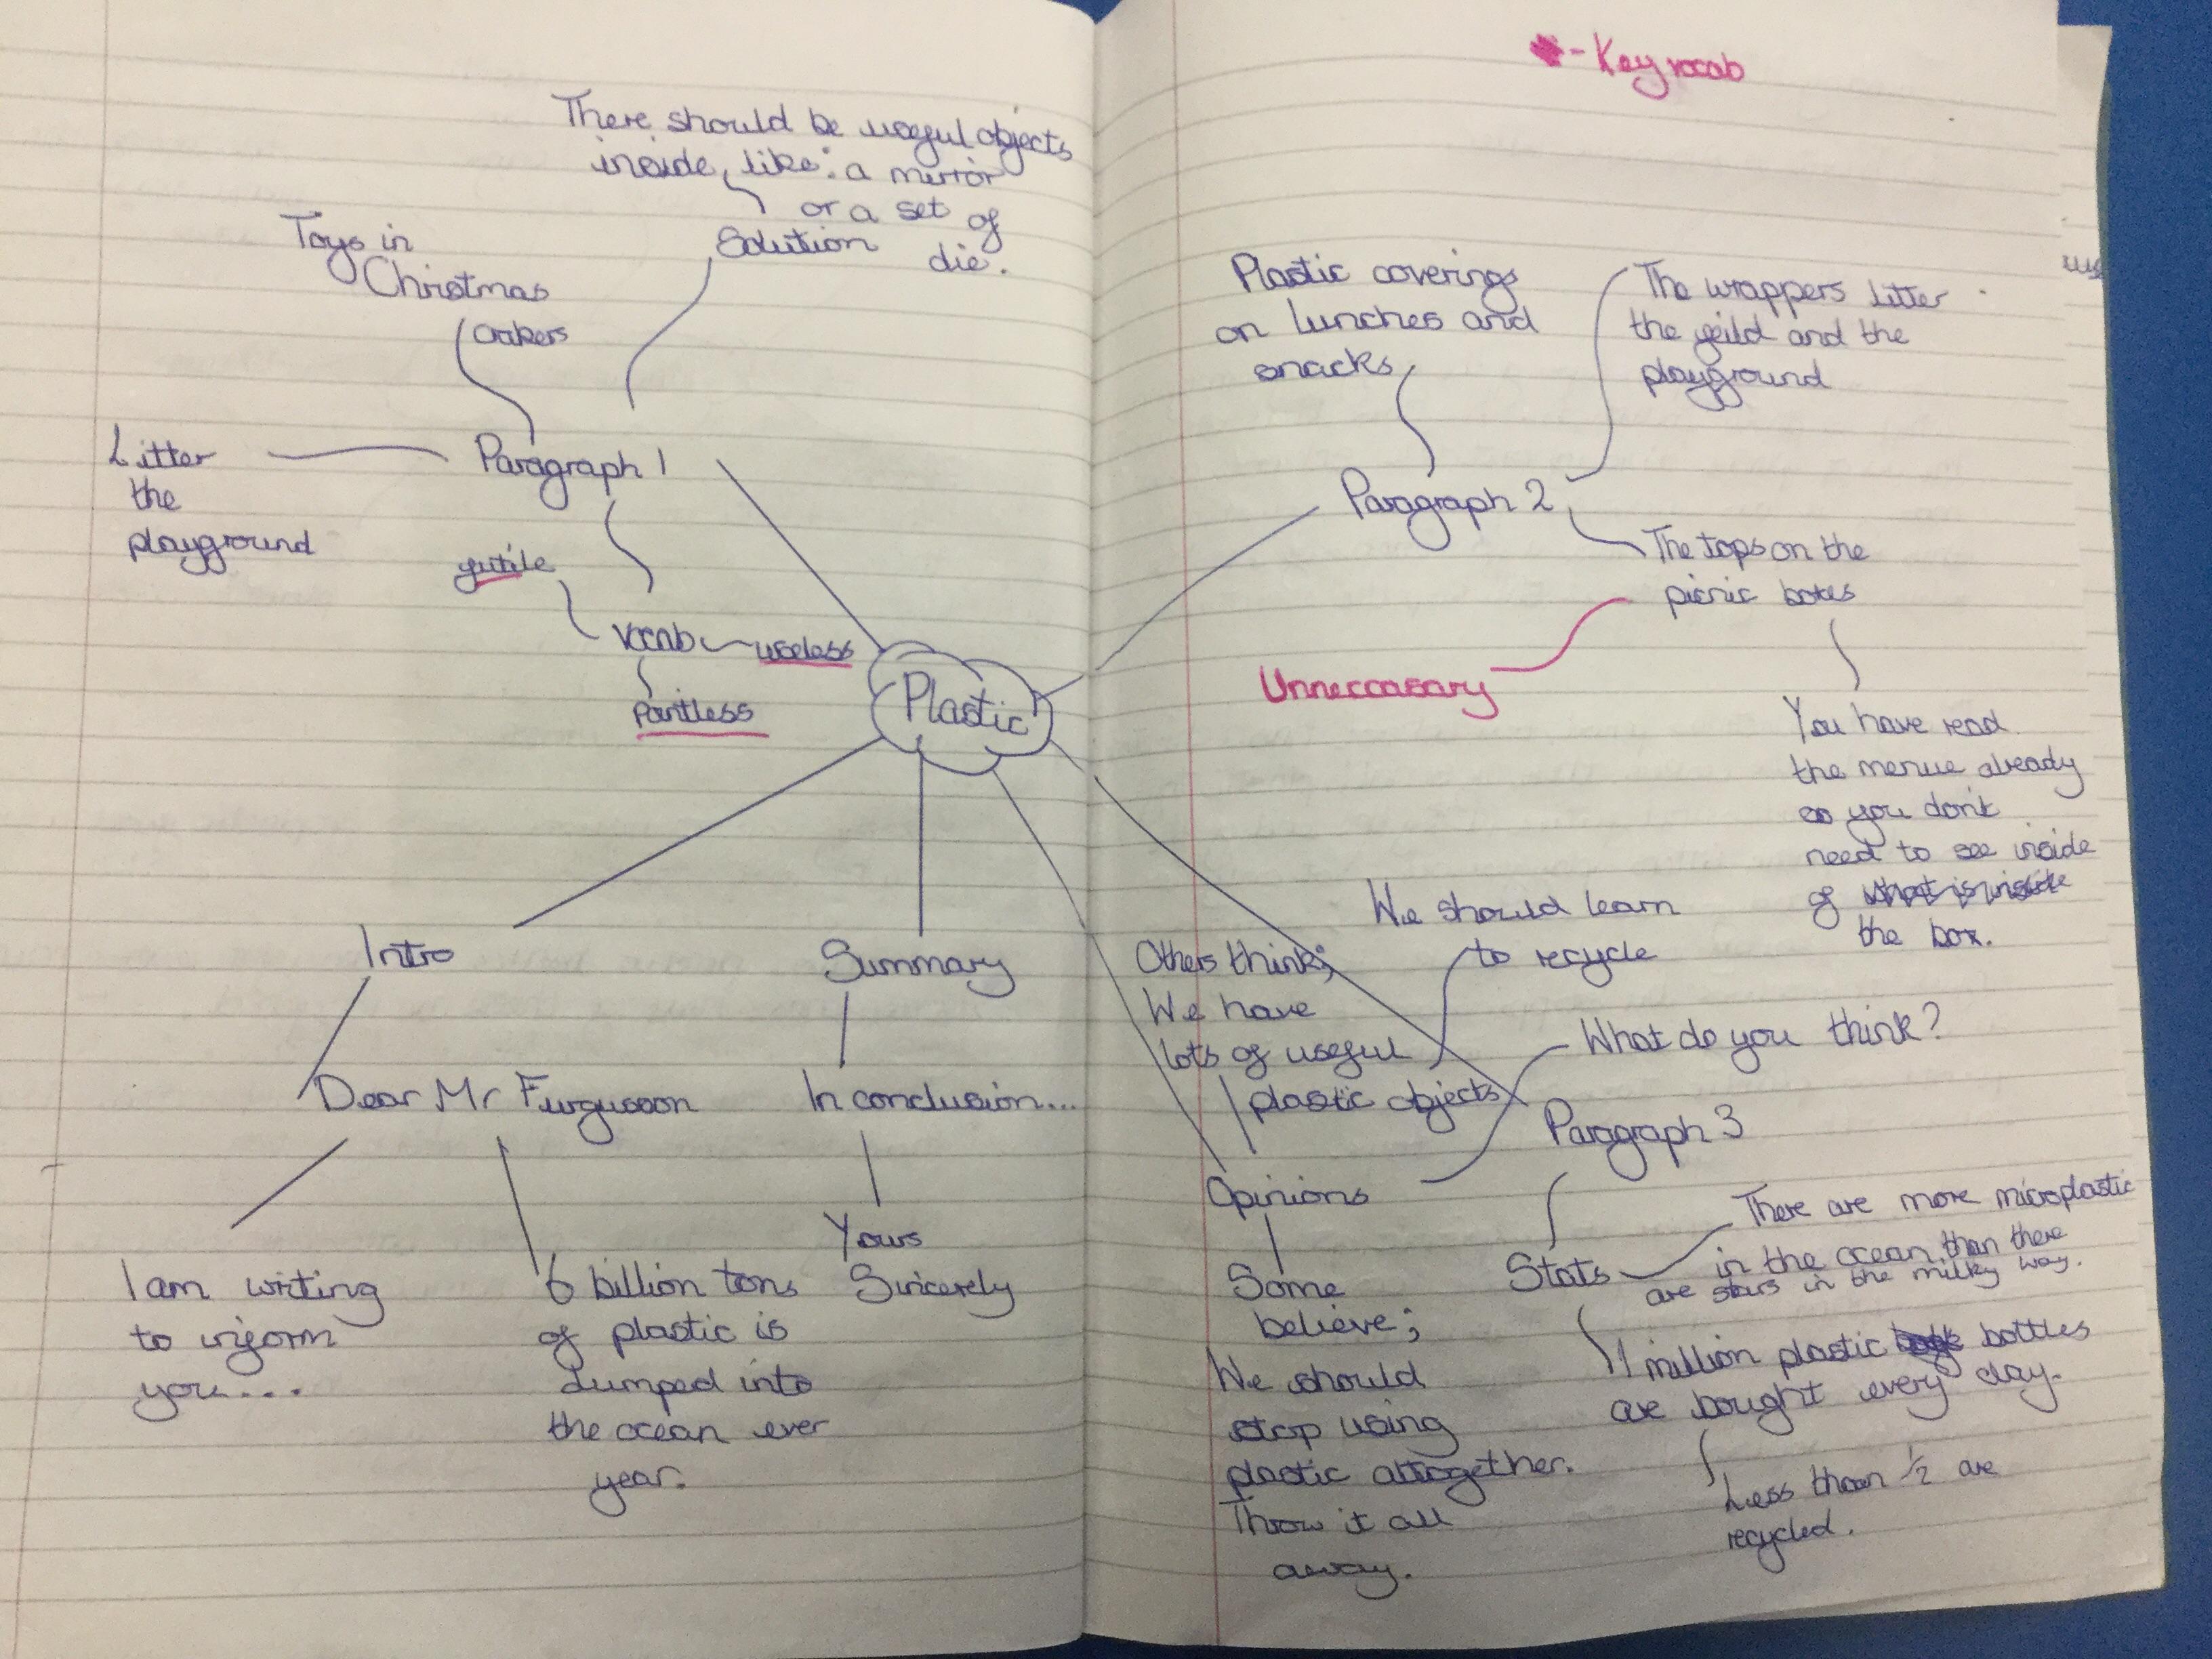 - Key vocab
There should be useful objects
inside, like: a mirror
or a set of
die.
Solution
Toys in
Christmas
crakers
Litter
the
playground
Paragraph 1
futile
vocab
useless
pointless
Plastic
Plastic coverings
on lunches and
snacks
The wrappers litter
the feild and the
playground
Paragraph 2
The tops on the
picnic boxes
Unneccasary
You have read
the menue already
so you don't
need to see inside
of what is inside
the box.
Intro
Dear Mr Furgusson
I am writing
to inform
you....
6 billion tons
of plastic is
dumped into
the ocean ever
year.
Summary
In conclusion...
Yours
Sincerely
We should learn
to recycle
Others think;
We have
lots of useful
plastic objects
What do you think?
Opinions
Some
believe;
We should
stop using
plastic altogether.
Throw it all
away.
Paragraph 3
Stats
There are more microplastic
in the ocean than there
are stars in the milky way.
1 million plastic bottles
are bought every day.
Less than 1/2 are
recycled.